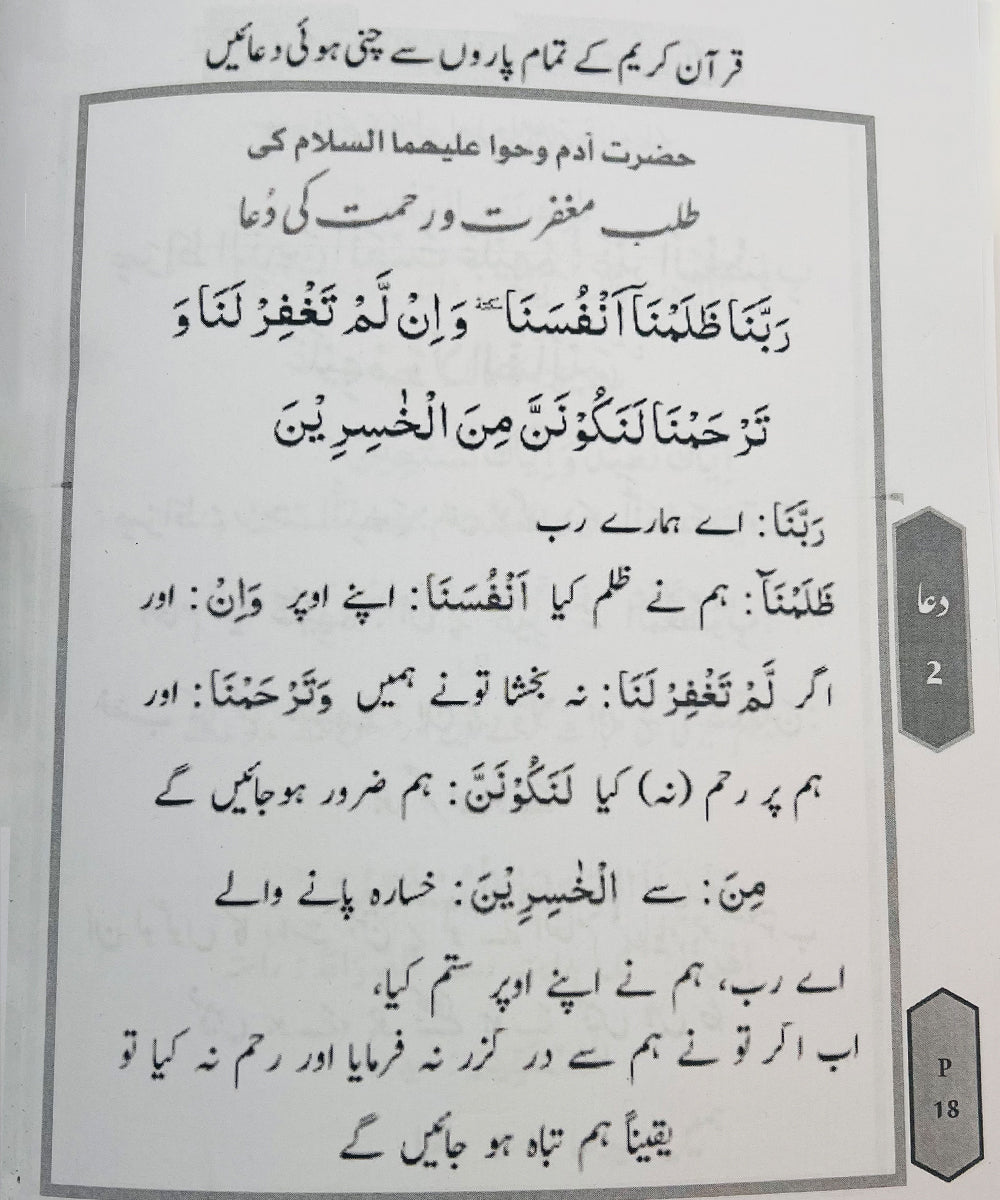 قرآن کریم کے تمام پاروں سے چنی ہوئی دعائیں
حضرت آدم وحوا علیهما السلام کی
طلب مغفرت و رحمت کی دُعا
رَبَّنَا ظَلَمْنَآ اَنْفُسَنَا ٚ وَاِنْ لَّمْ تَغْفِرْ لَنَا وَ
تَرْحَمْنَا لَنَكُوْنَنَّ مِنَ الْخٰسِرِيْنَ
رَبَّنَا: اے ہمارے رب
ظَلَمْنَآ: ہم نے ظلم کیا اَنْفُسَنَا: اپنے اوپر وَاِنْ: اور
اگر لَّمْ تَغْفِرْ لَنَا: نہ بخشا تونے ہمیں وَتَرْحَمْنَا: اور
ہم پر رحم (نہ) کیا لَنَكُوْنَنَّ: ہم ضرور ہوجائیں گے
مِنَ: سے الْخٰسِرِيْنَ: خسارہ پانے والے
اے رب، ہم نے اپنے اوپر ستم کیا،
اب اگر تو نے ہم سے در گزر نہ فرمایا اور رحم نہ کیا تو
یقیناً ہم تباہ ہو جائیں گے
دعا
2
P
18